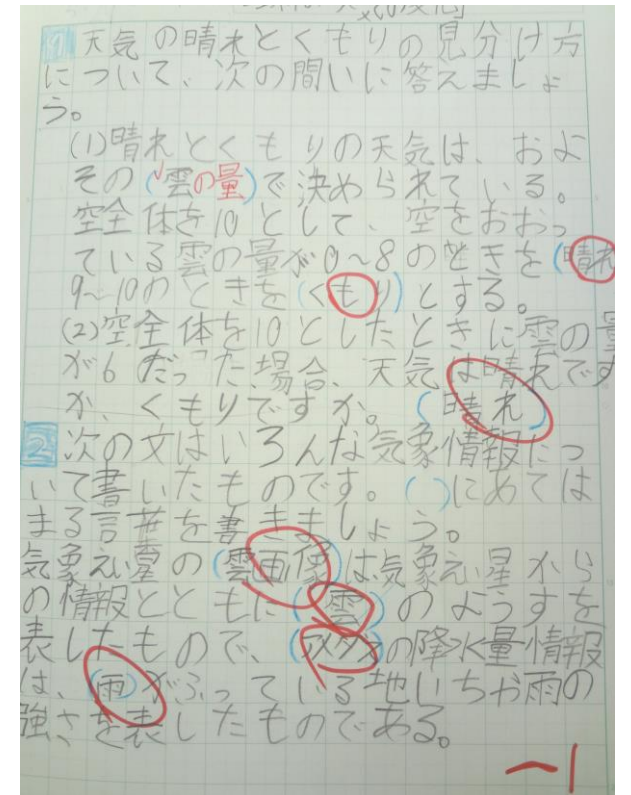 1 天気の晴れとくもりの見分け方
について、次の間いに答えましょ
う。
(1)晴れとくもりの天気は、およ
その(雲の量)で決められている。
空全体を10として、空をおおっ
ている雲の量が0~8のときを(晴れ
9~10のときを(くもり)とする。
(2)空全体を10としたときに雲の量
が6だった場合、天気は晴れです
か、くもりですか。(晴れ)
2 次の文はいろんな気象情報につ
いて書いたものです。()にあては
まる言葉を書きましょう。
気象えい星の(雲画像)は気象えい星から
の情報とともに(雲)のようすを
表したもので、(アメダス)の降水量情報
は、(雨)がふっている地いちや雨の
強さを表したものである。
-1